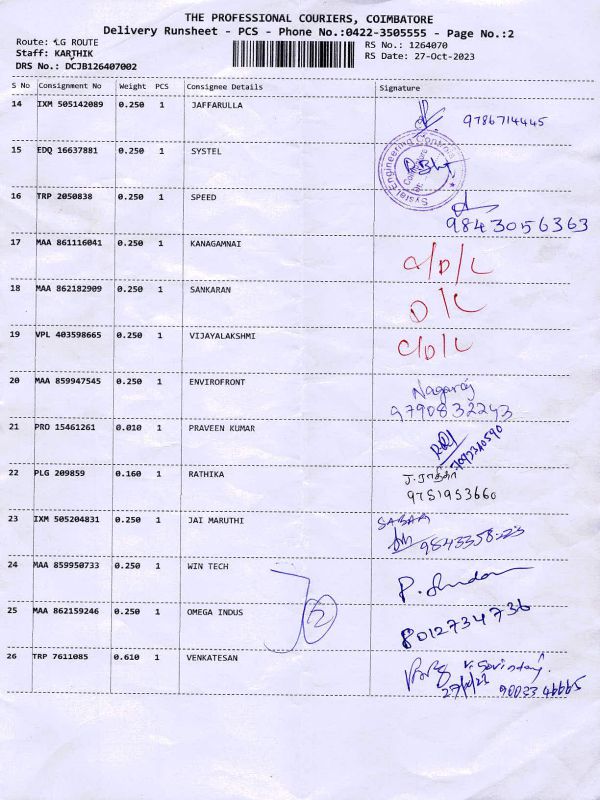 THE PROFESSIONAL COURIERS, COIMBATORE
Delivery Runsheet - PCS - Phone No.:0422-3505555 - Page No.:2
Route: LG ROUTE
Staff: KARTHIK
DRS No.: DCJB126407002
RS No.: 1264070
RS Date: 27-Oct-2023
S No Consignment No Weight PCS Consignee Details Signature
14 IXM 505142089 0.250 1 JAFFARULLA 9786714445
15 EDQ 16637881 0.250 1 SYSTEL
16 TRP 2050838 0.250 1 SPEED 9843056363
17 MAA 861116041 0.250 1 KANAGAMNAI C/D/L
18 MAA 862182909 0.250 1 SANKARAN D/L
19 VPL 403598665 0.250 1 VIJAYALAKSHMI C/D/L
20 MAA 859947545 0.250 1 ENVIROFRONT Nagaraj
9790832243
21 PRO 15461261 0.010 1 PRAVEEN KUMAR
22 PLG 209859 0.160 1 RATHIKA ர.ராதிகா
9751953660
23 IXM 505204831 0.250 1 JAI MARUTHI SABARI
24 MAA 859950733 0.250 1 WIN TECH
25 MAA 862159246 0.250 1 OMEGA INDUS 8012734736
26 TRP 7611085 0.610 1 VENKATESAN